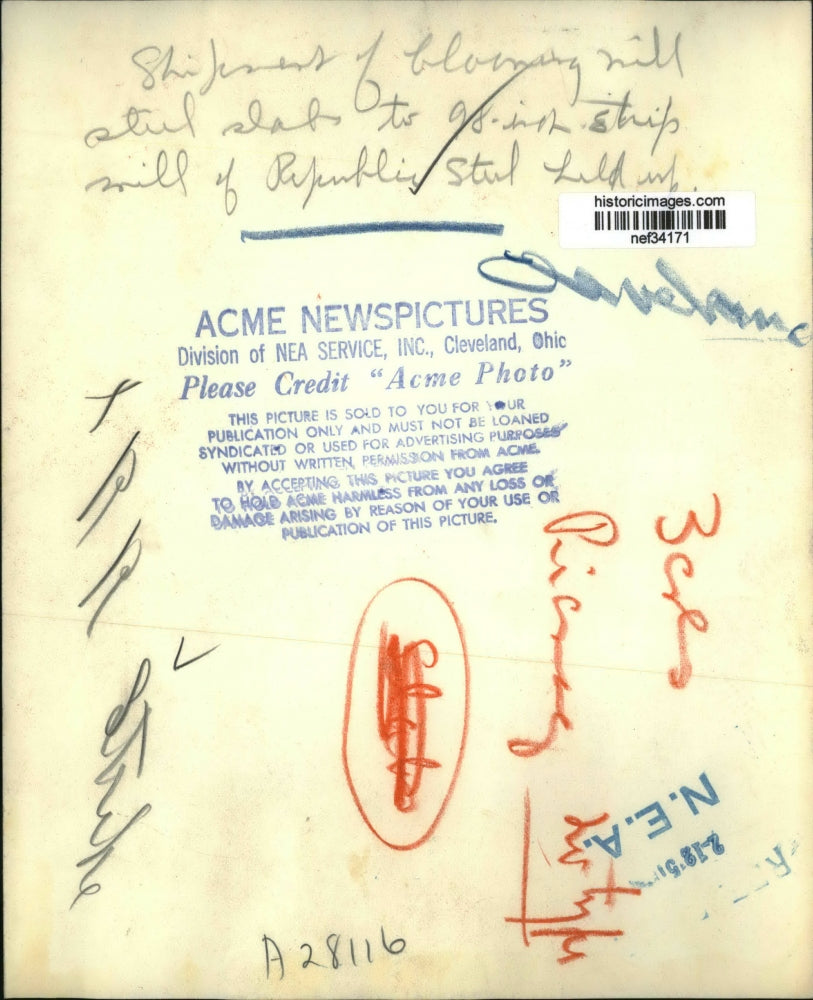 Shipment of blooming mill
steel slabs to 98-inch strip
mill of Republic Steel held up.
historicimages.com
nef34171
Cleveland
ACME NEWSPICTURES
Division of NEA SERVICE, INC., Cleveland, Ohio
Please Credit "Acme Photo"
THIS PICTURE IS SOLD TO YOU FOR YOUR
PUBLICATION ONLY AND MUST NOT BE LOANED
SYNDICATED OR USED FOR ADVERTISING PURPOSES
WITHOUT WRITTEN PERMISSION FROM ACME.
BY ACCEPTING THIS PICTURE YOU AGREE
TO HOLD ACME HARMLESS FROM ANY LOSS OR
DAMAGE ARISING BY REASON OF YOUR USE OR
PUBLICATION OF THIS PICTURE.
RR
Strike
3 cols
N.E.A.
A28116